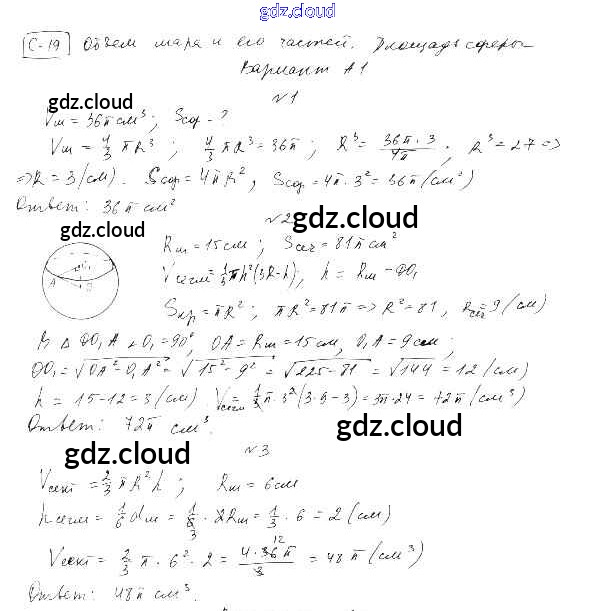 gdz.cloud
С-19 Объем шара и его частей. Площадь сферы
Вариант А1
№1
gdz.cloud
Vш = 36π см³; Sсф - ?
Vш = 4/3 πR³; 4/3 πR³ = 36π; R³ = 36π·3/4π; R³ = 27 =>
=> R = 3 (см). Sсф = 4πR², Sсф = 4π·3² = 36π (см²)
Ответ: 36π см²
№2
gdz.cloud
gdz.cloud
Rш = 15 см; Sсеч = 81π см²
Vсегм = 1/3 πh²(3R-h); h = Rш - OO₁
Sкр = πR²; πR² = 81π => R² = 81, Rсеч = 9 (см)
A
В Δ OO₁A ∠O₁ = 90°, OA = Rш = 15 см, O₁A = 9 см;
OO₁ = √OA² - O₁A² = √15² - 9² = √225 - 81 = √144 = 12 (см)
h = 15 - 12 = 3 (см). Vсегм = 1/3 π·3² = 3π·24 = 72π (см³)
Ответ: 72π см³.
gdz.cloud
gdz.cloud
№3
Vсект = 2/3 πR²h; Rш = 6 см
hсегм = 1/6 dш = 1/6 · 2Rш = 1/3 · 6 = 2 (см)
Vсект = 2/3 π · 6² · 2 = 4·36π/3 = 48π (см³)
12
3
Ответ: 48π см³.